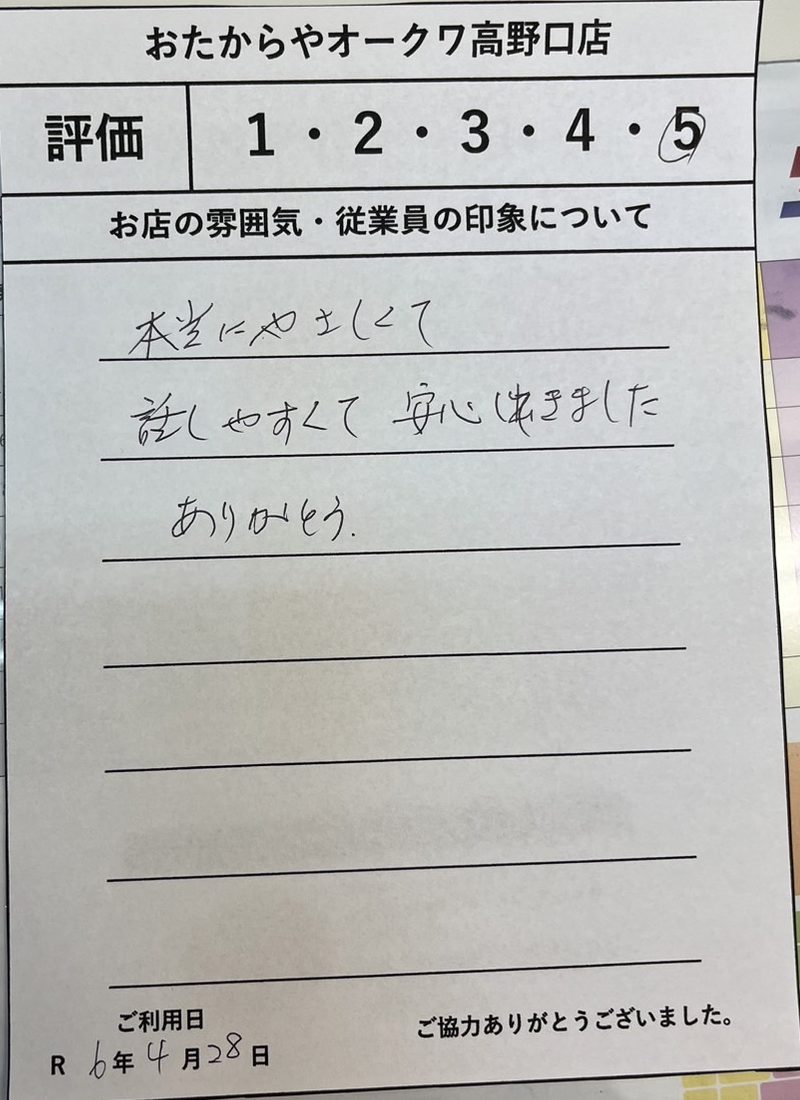 おたからやオークワ高野口店
評価 1・2・3・4・5
お店の雰囲気・従業員の印象について
本当にやさしくて
話しやすくて 安心出きました
ありがとう.
ご利用日
R 6年4月28日
ご協力ありがとうございました。